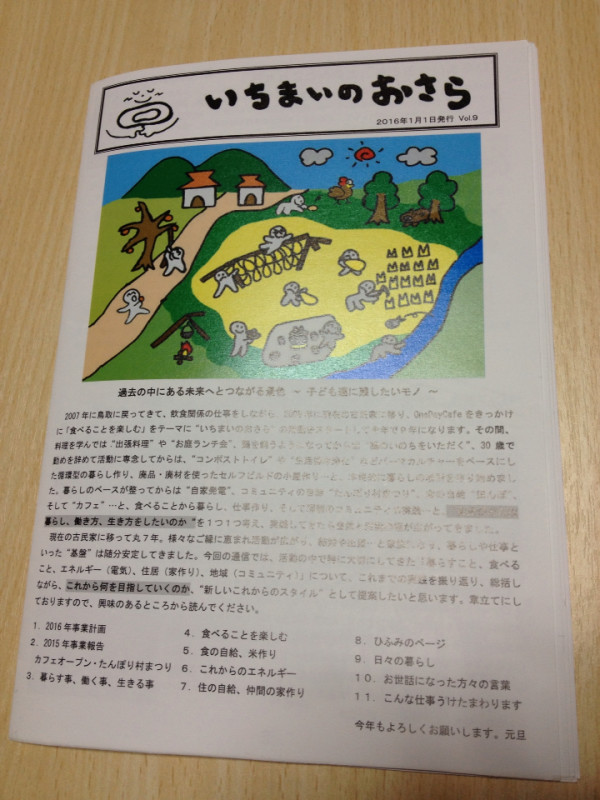 いちまいのおさら
2016年1月1日発行 Vol.9
過去の中にある未来へとつながる景色 ～ 子ども達に残したいモノ ～
2007年に鳥取に戻ってきて、飲食関係の仕事をしながら OneDayCafeをきっかけ
に「食べることを楽しむ」をテーマに“いちまいのおさら”
料理を学んでは“出張料理”や“お庭ランチ会”、 いのちをいただく”、30歳で
勤めを辞めて活動に専念してからは、“コンポストトイレ”や ベースにし
た循環型の暮らし作り、廃品・廃材を使ったセルフビルドの小屋作り
た。暮らしのペースが整ってからは“自家発電”、コミュニティの
そして“カフェ”…と、食べることから暮らし、仕事作り、そして
暮らし、働き方、生き方をしたいのか“を1つ1つ考え、
現在の古民家に移って丸7年。様々なご縁に恵まれ活動が広がり、 暮らしや仕事と
いった“基盤”は随分安定してきました。今回の通信では、活動の中で特に大切にしてきた「暮らすこと、食べる
こと、エネルギー（電気）、住居（家作り）、地域（コミュニティ）」について、これまでの実践を振り返り、総括し
ながら、これから何を目指していくのか、“新しいこれからのスタイル”として提案したいと思います。章立てにし
ておりますので、興味のあるところから読んでください。
1．2016年事業計画
2．2015年事業報告
カフェオープン・たんぽり村まつり
3．暮らす事、働く事、生きる事
4．食べることを楽しむ
5．食の自給、米作り
6．これからのエネルギー
7．住の自給、仲間の家作り
8．ひふみのページ
9．日々の暮らし
10．お世話になった方々の言葉
11．こんな仕事うけたまわります
今年もよろしくお願いします。元旦